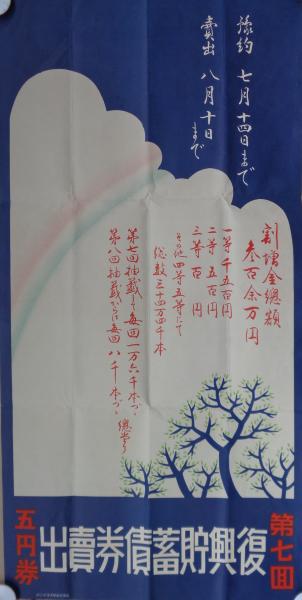 豫約 七月十四日まで
賣出 八月十日まで
割増金總額
参百余万円
一等千五百円
二等五百円
三等百円
その他四等五等にて
総数三十四万四千本
第七回抽籤まで毎回一万六千本づゝ
第八回抽籤からは毎回八千本づゝ
第七回
復興貯蓄債券賣出
五円券